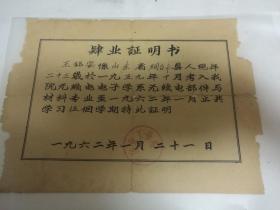 肆业証明书
王钰安像山东省 县人現年
二十二歲於一九五九年十月考入我
院无线电电子学系无线电部件与
材料专业至一九六二年一月止共
学习伍個学期特此証明
一九六二年一月二十一日